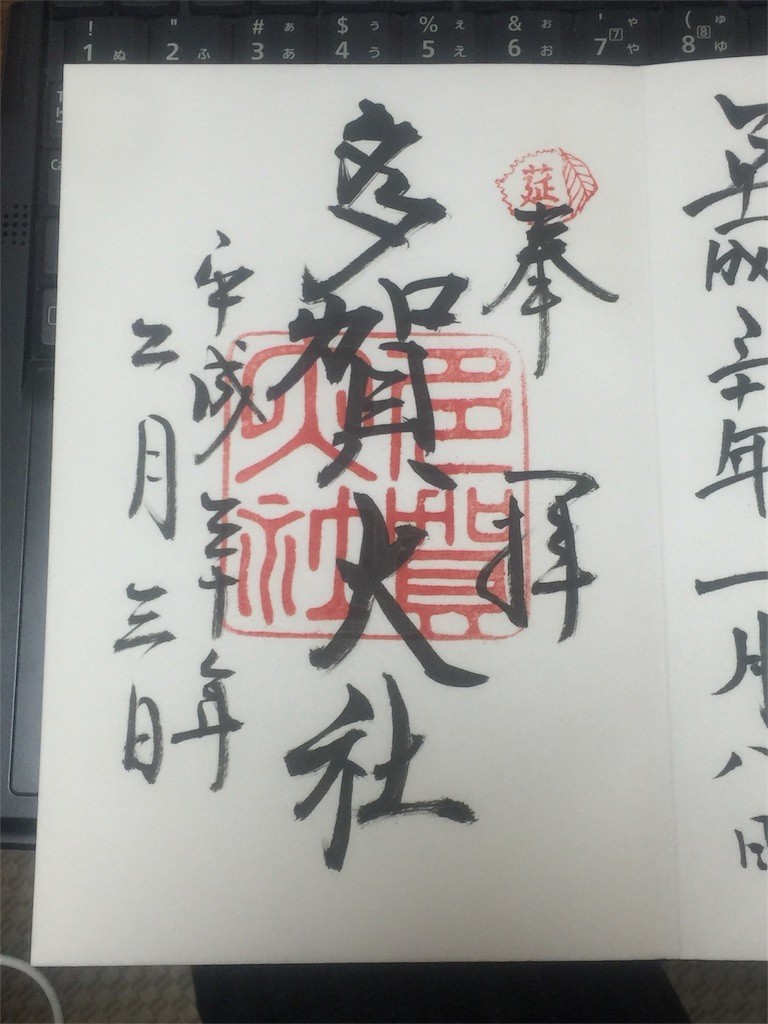 ! 1 ぬ
" 2 ふ
# ぁ 3 あ
$ ぅ 4 う
% ぇ 5 え
& ぉ 6 お
' ゃ 7 7 や
( ゅ 8 8 ゆ
平成三十年一月八日
莚
奉拝
多賀大社
多賀大社
平成三十年
二月三日